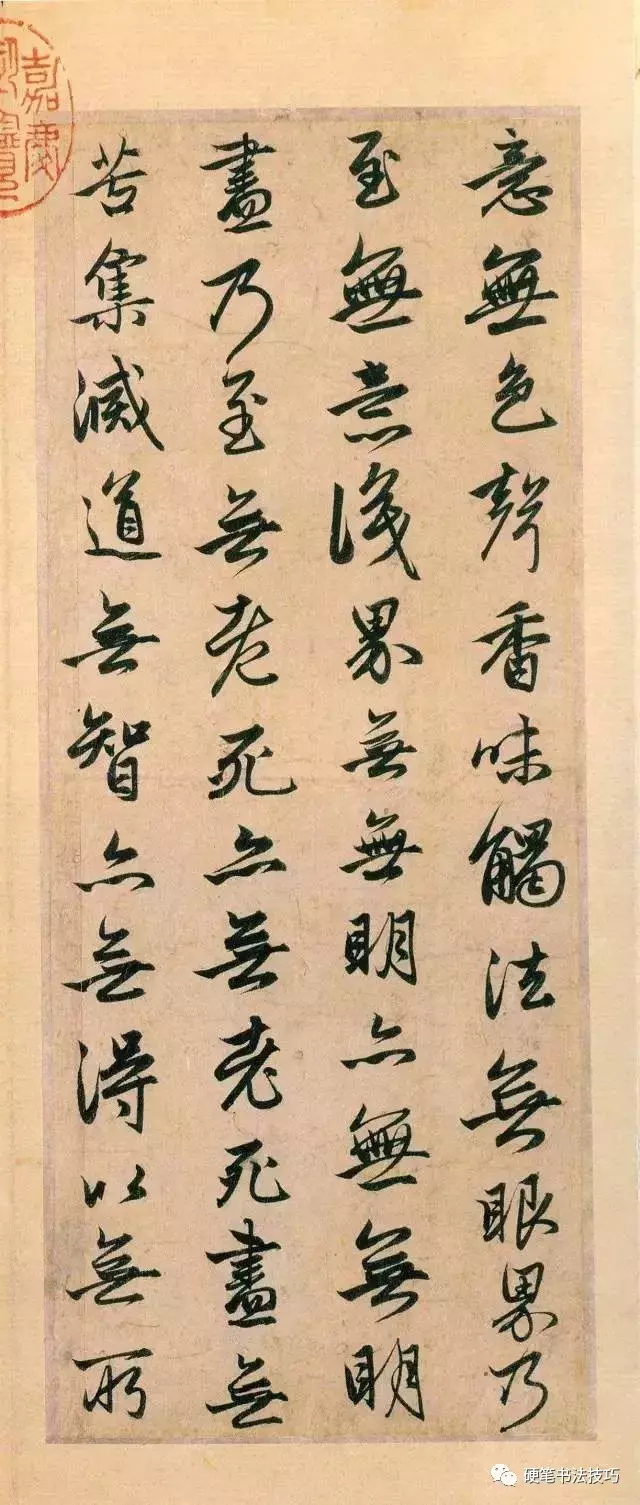 意無色聲香味觸法無眼界乃
至無意識界無無明亦無無明
盡乃至無老死亦無老死盡無
苦集滅道無智亦無得以無所
嘉慶
硬笔书法技巧